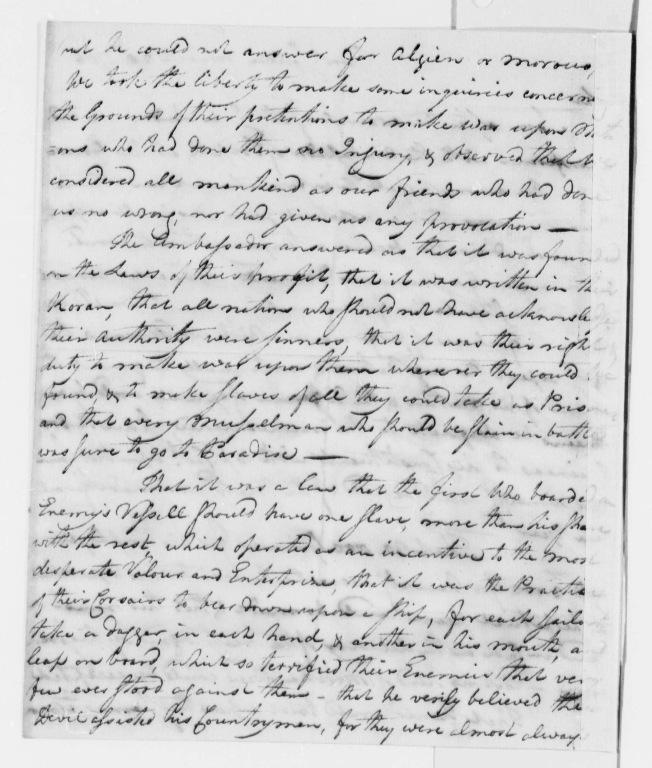 but he could not answer for Algiers or Morocco,
We took the liberty to make some inquiries concern
the Grounds of their pretentions to make war upon
-ons who had done them no Injury, & observed that
considered all mankind as our friends who had don
us no wrong, nor had given us any provocation —
The Ambassador answered us that it was foun
on the Laws of their profit, that it was written in th
Koran, that all nations who should not have acknowle
their authority were sinners, that it was their righ
duty to make war upon them wherever they could
found, & to make slaves of all they could take as Pris
and that every Musselman who should be slain in battl
was sure to go to Paradise —
That it was a law that the first who boarded
Enemy's Vessell should have one slave, more than his sha
with the rest, which operated as an incentive to the mos
desperate Valour and Enterprize, that it was the Practic
of their Corsairs to bear down upon a ship, for each sailo
take a dagger, in each hand, & another in his mouth, a
leap on board, which so terrified their Enemies that ver
few ever stood against them – that he verily believed the
Devil assisted his Countrymen, for they were almost always